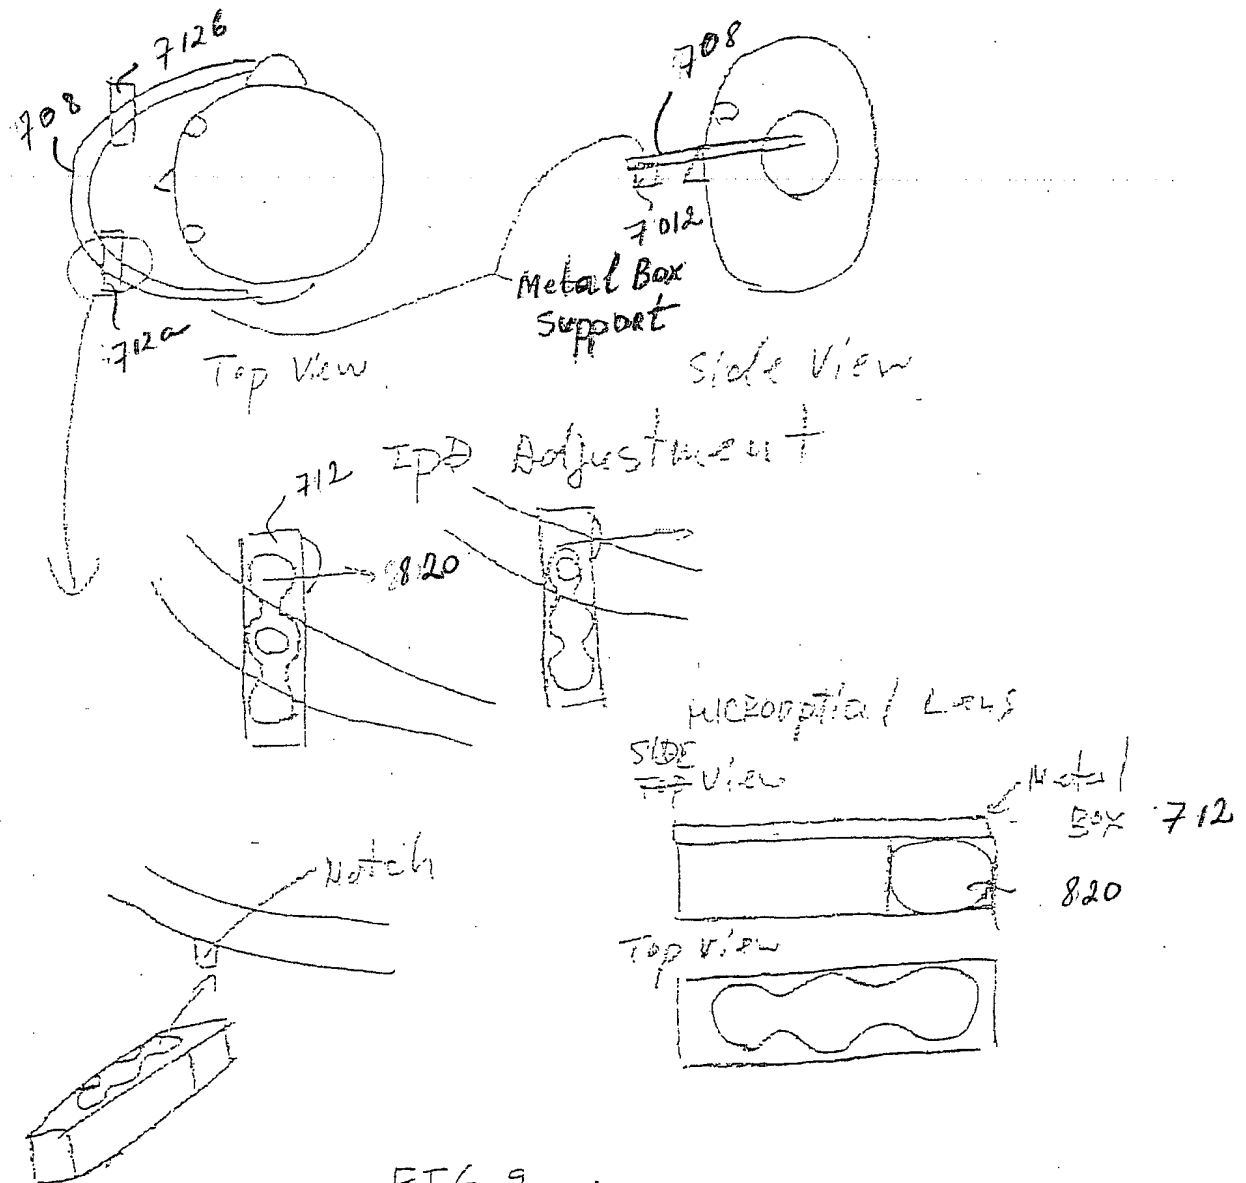 712b
708
708
7012
Metal Box
Support
712a
Top View
Side View
IPD Adjustment
712
8820
Microoptial Lens
SIDE
Top View
Metal
Box 712
820
Notch
Top View
FIG 9